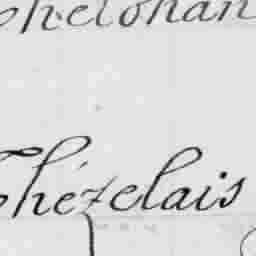 Thelohan
Thézelais